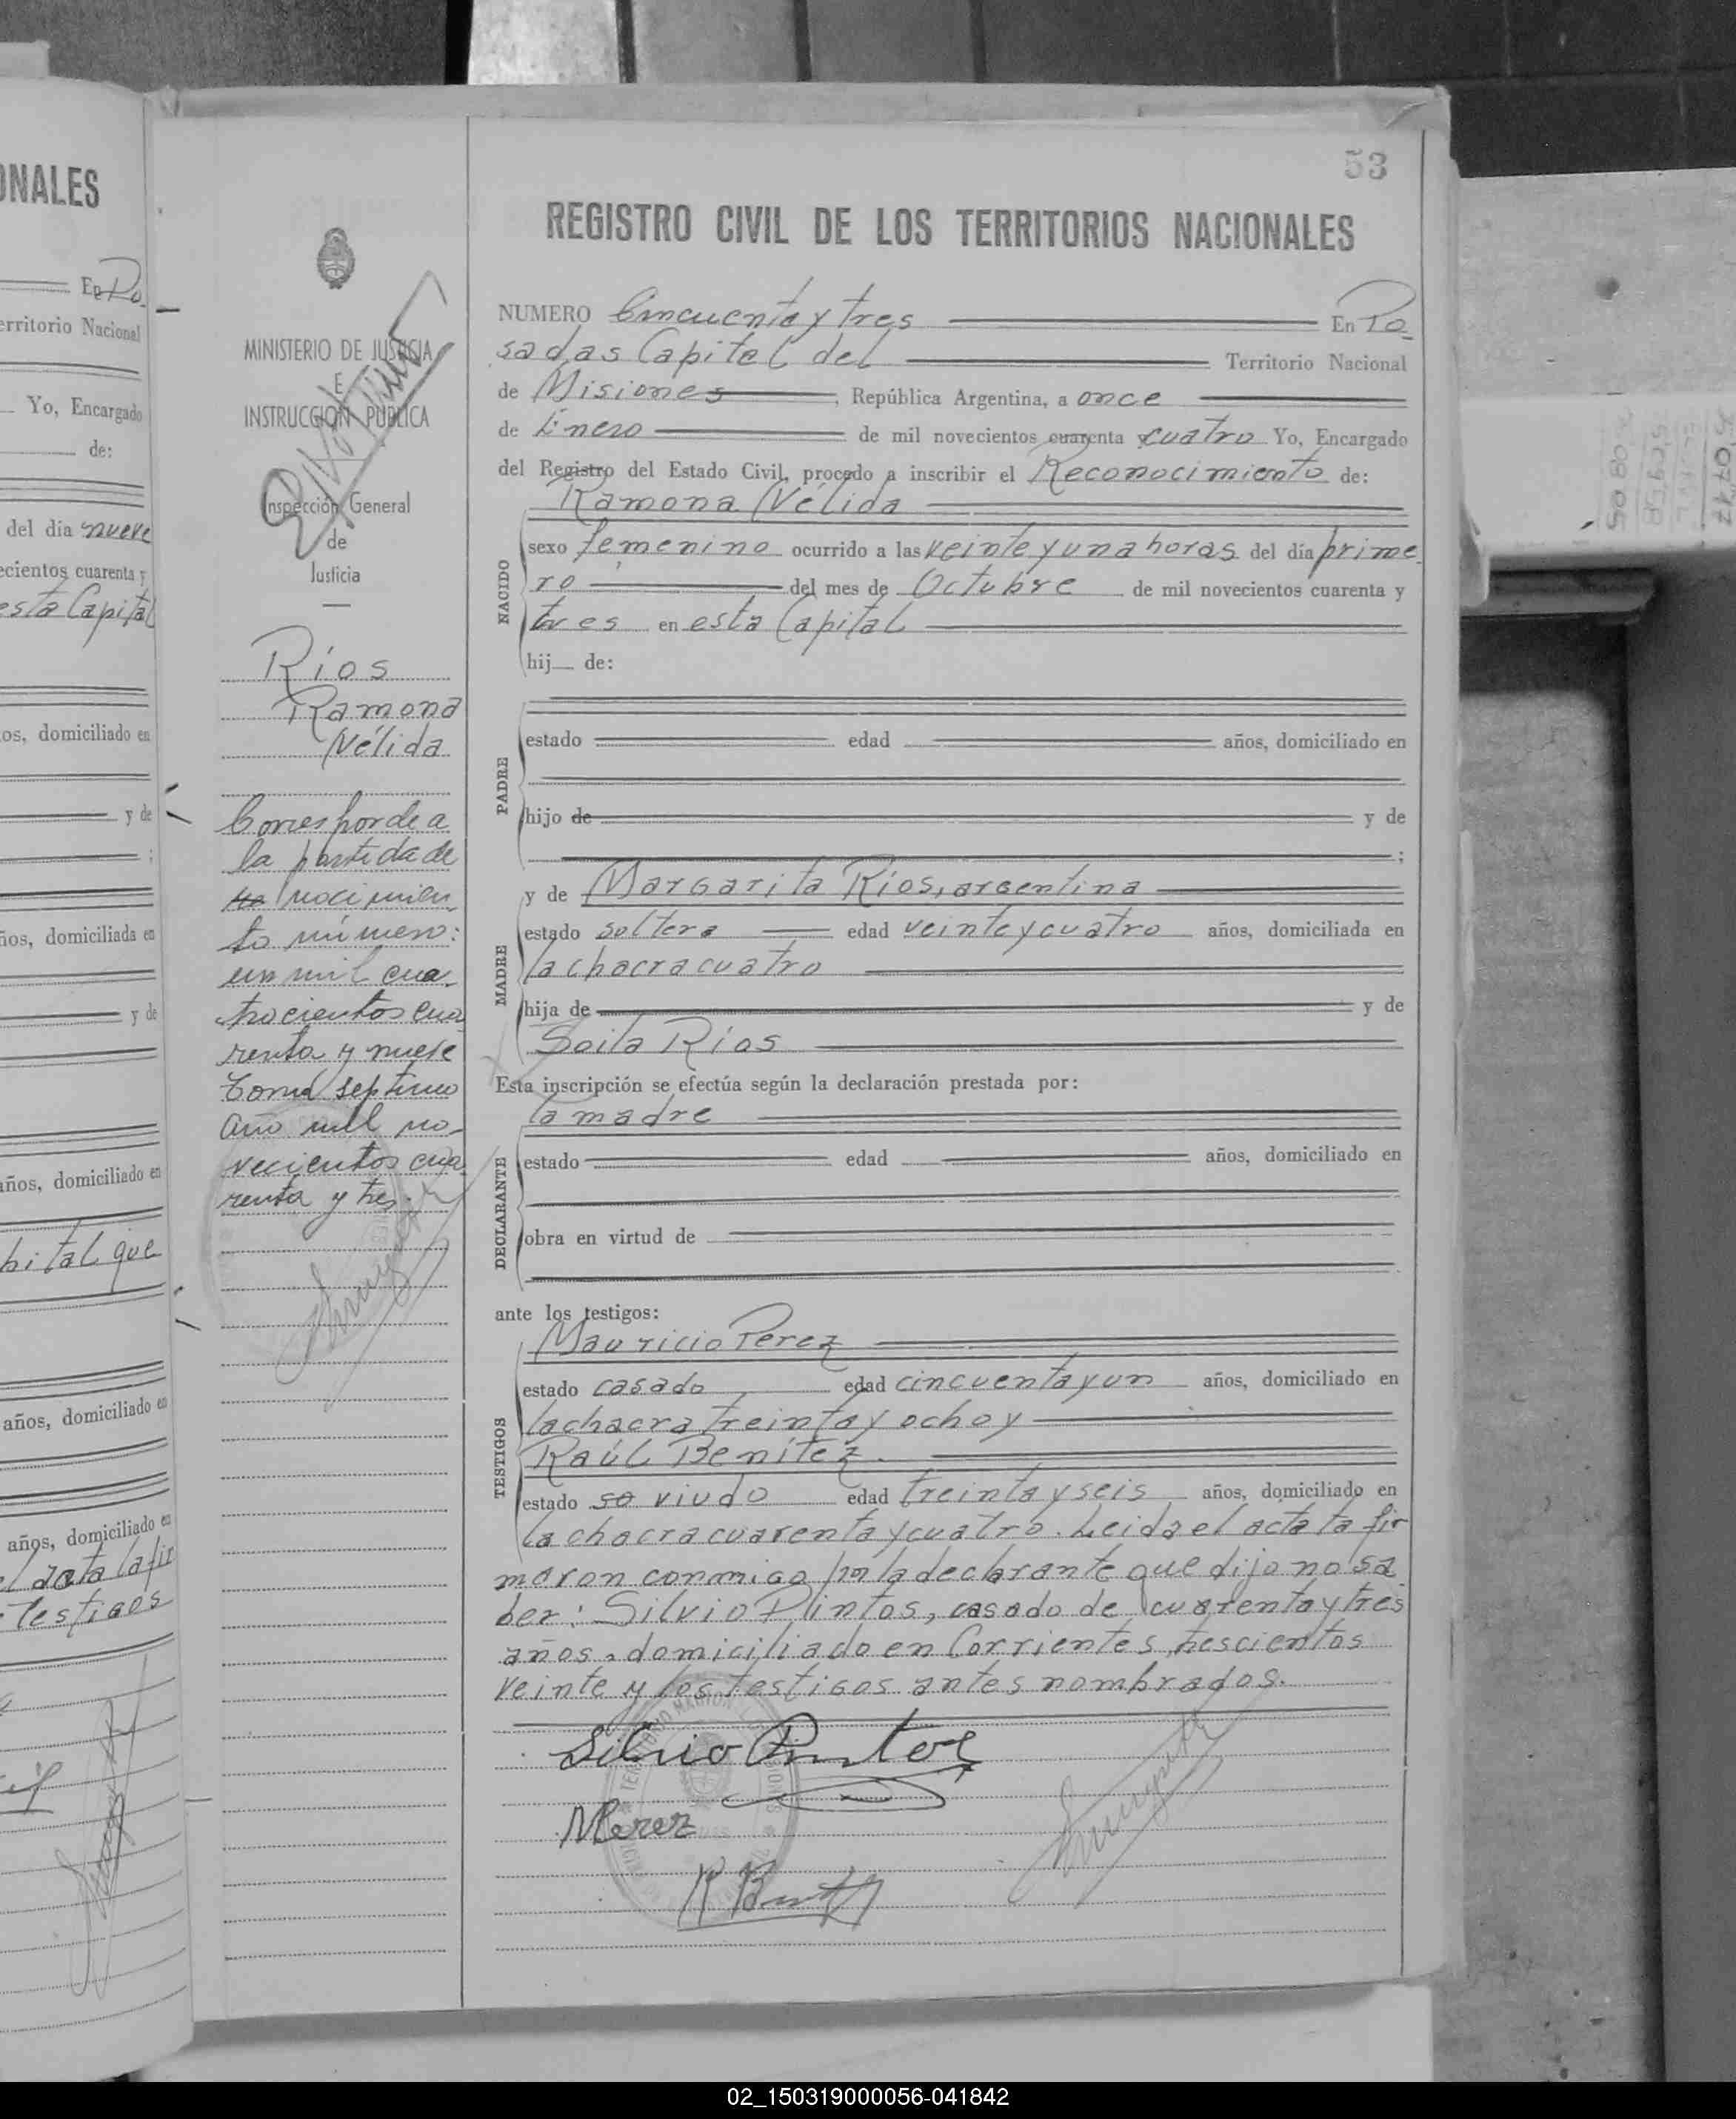 ONALES
En Po
erritorio Nacional
Yo, Encargado
de:
del día nueve
ecientos cuarenta y
esta Capital
os, domiciliado en
y de
;
ños, domiciliada en
y de
años, domiciliado en
pital que
años, domiciliado en
años, domiciliado en
el acta la fir
testigos
MINISTERIO DE JUSTICIA
E
INSTRUCCION PUBLICA
Inspección General
de
Justicia
Ríos
Ramona
Nélida
Corresponde a
la partida de
nacimien
to número:
un mil cua
trocientos cua
renta y nueve
tomo septimo
año mil no-
vecientos cua
renta y tres.
53
REGISTRO CIVIL DE LOS TERRITORIOS NACIONALES
NUMERO Cincuenta y tres En Po
sadas Capital del Territorio Nacional
de Misiones, República Argentina, a once
de Enero de mil novecientos cuarenta y cuatro Yo, Encargado
del Registro del Estado Civil, procedo a inscribir el Reconocimiento de:
Ramona Nélida
NACIDO
sexo femenino ocurrido a las veinte y una horas del día prime
ro del mes de Octubre de mil novecientos cuarenta y
tres en esta Capital
hij de:
PADRE
estado edad años, domiciliado en
hijo de y de
;
MADRE
y de Margarita Ríos, argentina
estado soltera edad veinte y cuatro años, domiciliada en
la chacra cuatro
hija de y de
Soila Ríos
Esta inscripción se efectúa según la declaración prestada por:
la madre
DECLARANTE
estado edad años, domiciliado en
obra en virtud de
ante los testigos:
TESTIGOS
Mauricio Perez
estado casado edad cincuenta y un años, domiciliado en
la chacra treinta y ocho y
Raúl Benítez.
estado so viudo edad treinta y seis años, domiciliado en
la chacra cuarenta y cuatro. Leida el acta la fir
maron conmigo por la declarante que dijo no sa
ber: Silvio Pintos, casado de cuarenta y tres
años, domiciliado en Corrientes trescientos
veinte y los testigos antes nombrados.
Silvio Pintos
MPerez
R Benitez
02_150319000056-041842